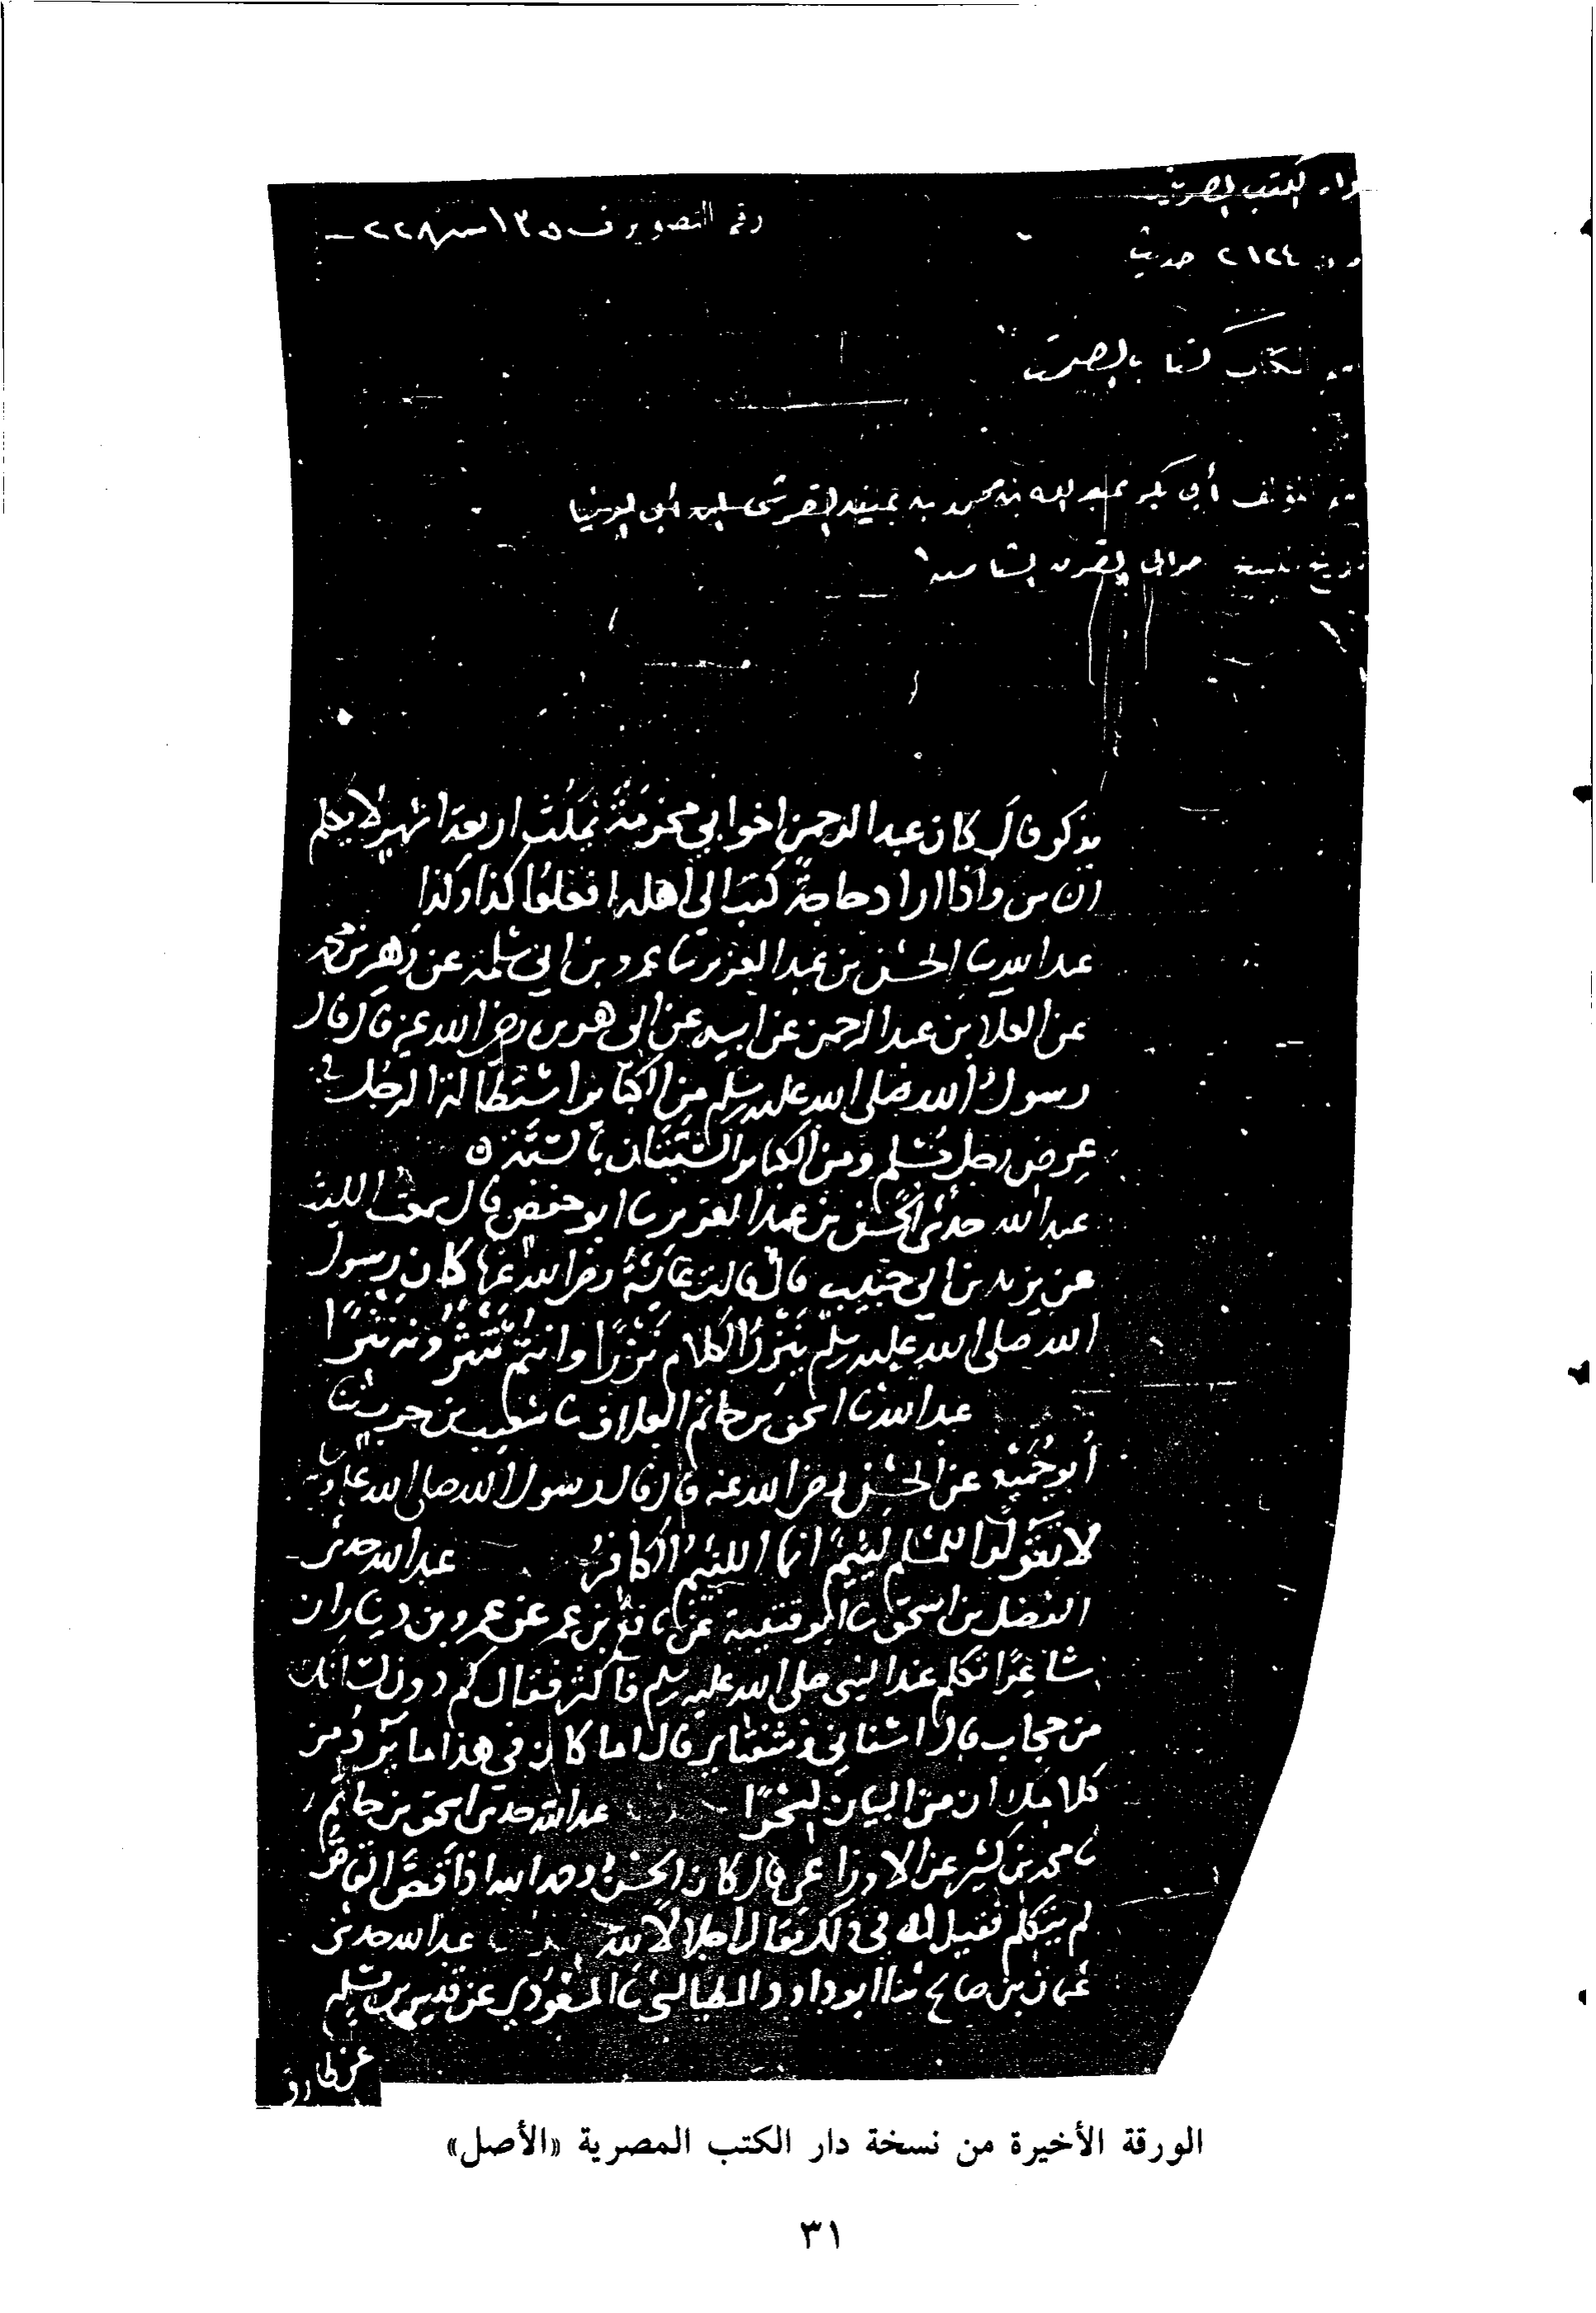 دار الكتب المصرية
رقم التصوير
٢١٢٤ حديث
الكتاب كتاب الصمت
المؤلف أبي بكر عبد الله بن محمد بن عبيد القرشي ابن أبي الدنيا
تاريخ النسخ حوالي القرن الثامن
يذكر قال كان عبد الرحمن اخوا بي مخرمة يمكث اربعة اشهر لا يتكلم
واذا اراد حاجة كتب الى اهله افعلوا كذا وكذا
عبد الله نا الحسن بن عبد العزيز نا عمرو بن ابي سلمة عن زهير بن محمد
عن العلا بن عبد الرحمن عن ابيه عن ابي هريره رضي الله عنه قال قال
رسول الله صلى الله عليه وسلم من الكبائر استطالة الرجل في
عرض رجل مسلم ومن الكبائر السبتان بالسبة
عبد الله حدثني الحسن بن عبد العزيز نا ابو حفص قال سمعت الليث
عن يزيد بن ابي حبيب قال قالت عائشة رضي الله عنها كان رسول
الله صلى الله عليه وسلم ينزر الكلام نزرا وانتم تنثرونه نثرا
عبد الله نا اسحق بن حاتم العلاف نا شعيب بن حرب نا
ابو عن الحسن رضي الله عنه قال قال رسول الله صلى الله عليه وسلم
لا تقولوا للمسلم لئيم انما اللئيم الكافر عبد الله حدثني
الفضل بن اسحق نا ابو قتيبة عن نافع بن عمر عن عمرو بن دينار ان
شاعرا تكلم عند النبي صلى الله عليه وسلم فأكثر فقال كم دون لسانك
من حجاب قال اسناني وشفتاي قال اما كان في هذا ما يرد من
كلامك ان من البيان لسحرا عبد الله حدثني اسحق بن حاتم
نا محمد بن كثير عن الاوزاعي قال كان الحسن رحمه الله اذا قص القاص
لم يتكلم فقيل له في ذلك فقال اجلالا لله عبد الله حدثني
عثمان بن صالح نا ابو داود الطيالسي نا المسعودي عن قيس بن مسلم
عن طارق
الورقة الأخيرة من نسخة دار الكتب المصرية «الأصل»
٣١